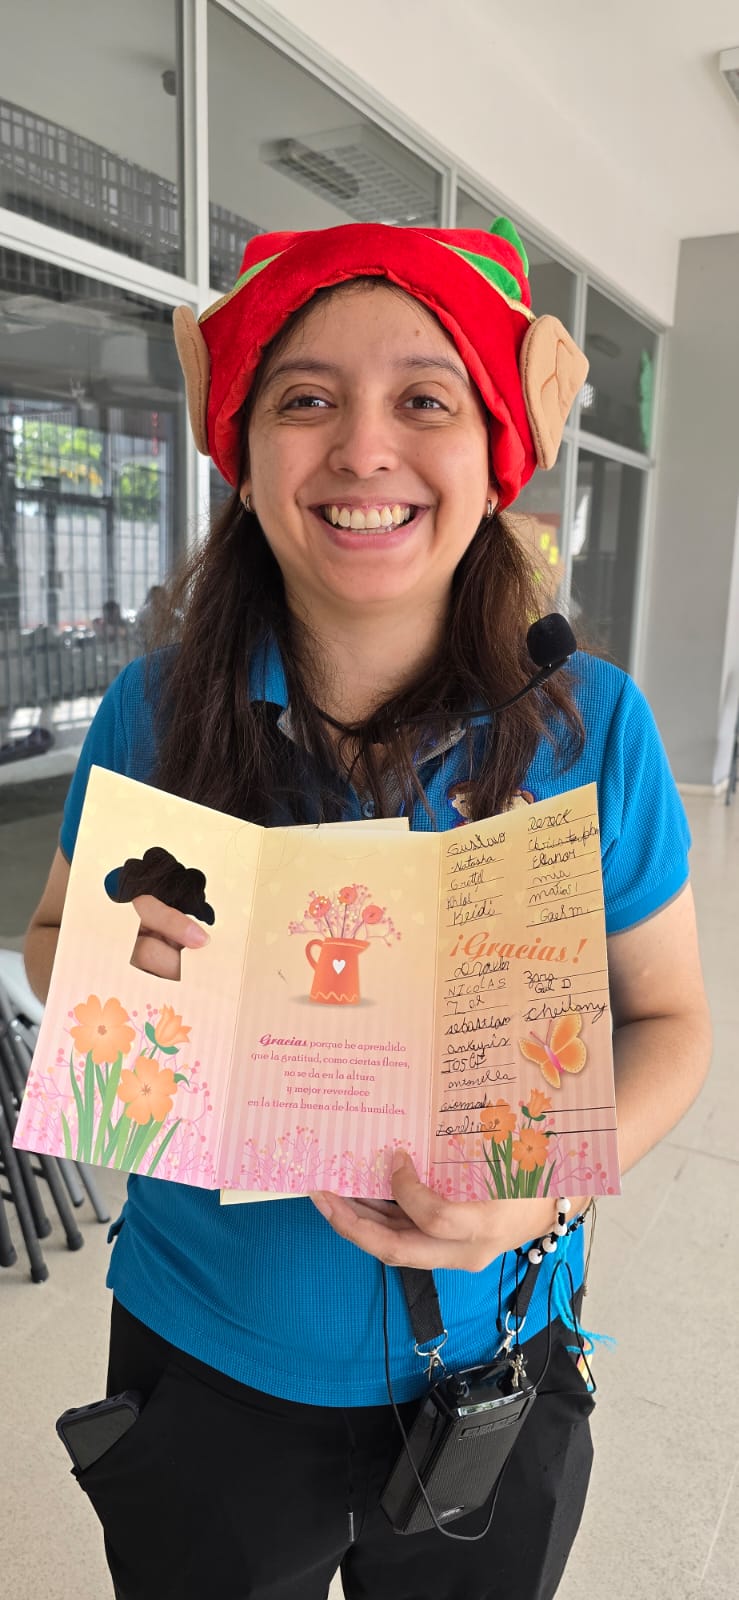 Gracias porque he aprendido
que la gratitud, como ciertas flores,
no se da en la altura
y mejor reverdece
en la tierra buena de los humildes.
Gustavo
Natasha
Grettel
Khloe
Keidi
Dereck
Christopher
Eleanor
mia
matias!
Gael m.
¡Gracias!
NICOLAS
sebastian
JOSUE
antonella
Zara
Gael D
Cheilany